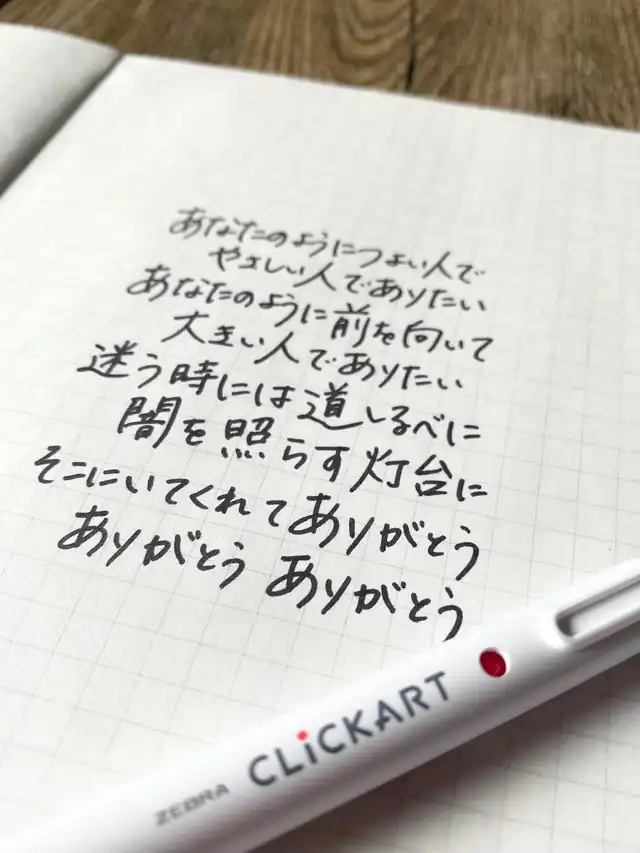 あなたのようにつよい人で
やさしい人でありたい
あなたのように前を向いて
大きい人でありたい
迷う時には道しるべに
闇を照らす灯台に
そこにいてくれてありがとう
ありがとう ありがとう
ZEBRA CLiCKART